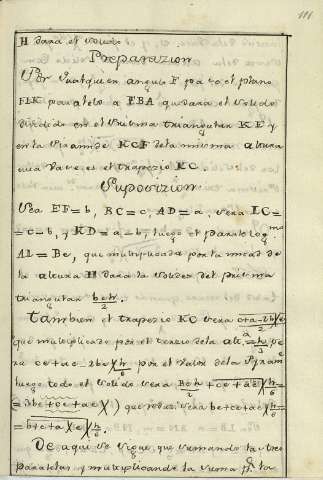 111
H dara el solido.
Preparazion
Por qualquier angulo F pase el plano
FLK paralelo a EBA quedara el solido
dividido en el Prisma triangular KE y
en la Piramide KCF de la misma altura
cuia vase es el trapezio KC.
Suposizion
Sea EF=b, BC=c, AD=a, sera LC=
=c-b, y KD=a-b, luego el paralelog.mo
AL=Be, que multiplicada por la mitad de
la altura H dara la solidez del prisma
triangular beh/2.
Tambien el trapezio KC sera c+a-2b/2 × e
que multiplicado por el terzio de la alt.a = h/3 se
ra ce+ae-2be × h/6 por el valor de la Piram
luego todo el solido sera Beh/2 + ce+ae
=3be+ce+ae que reduz. sera be+ce+ae × h/6 =
=b+c+a × e × h/6.
De aqui se sigue, que sumando las tres
paralelas y multiplicando la suma por la